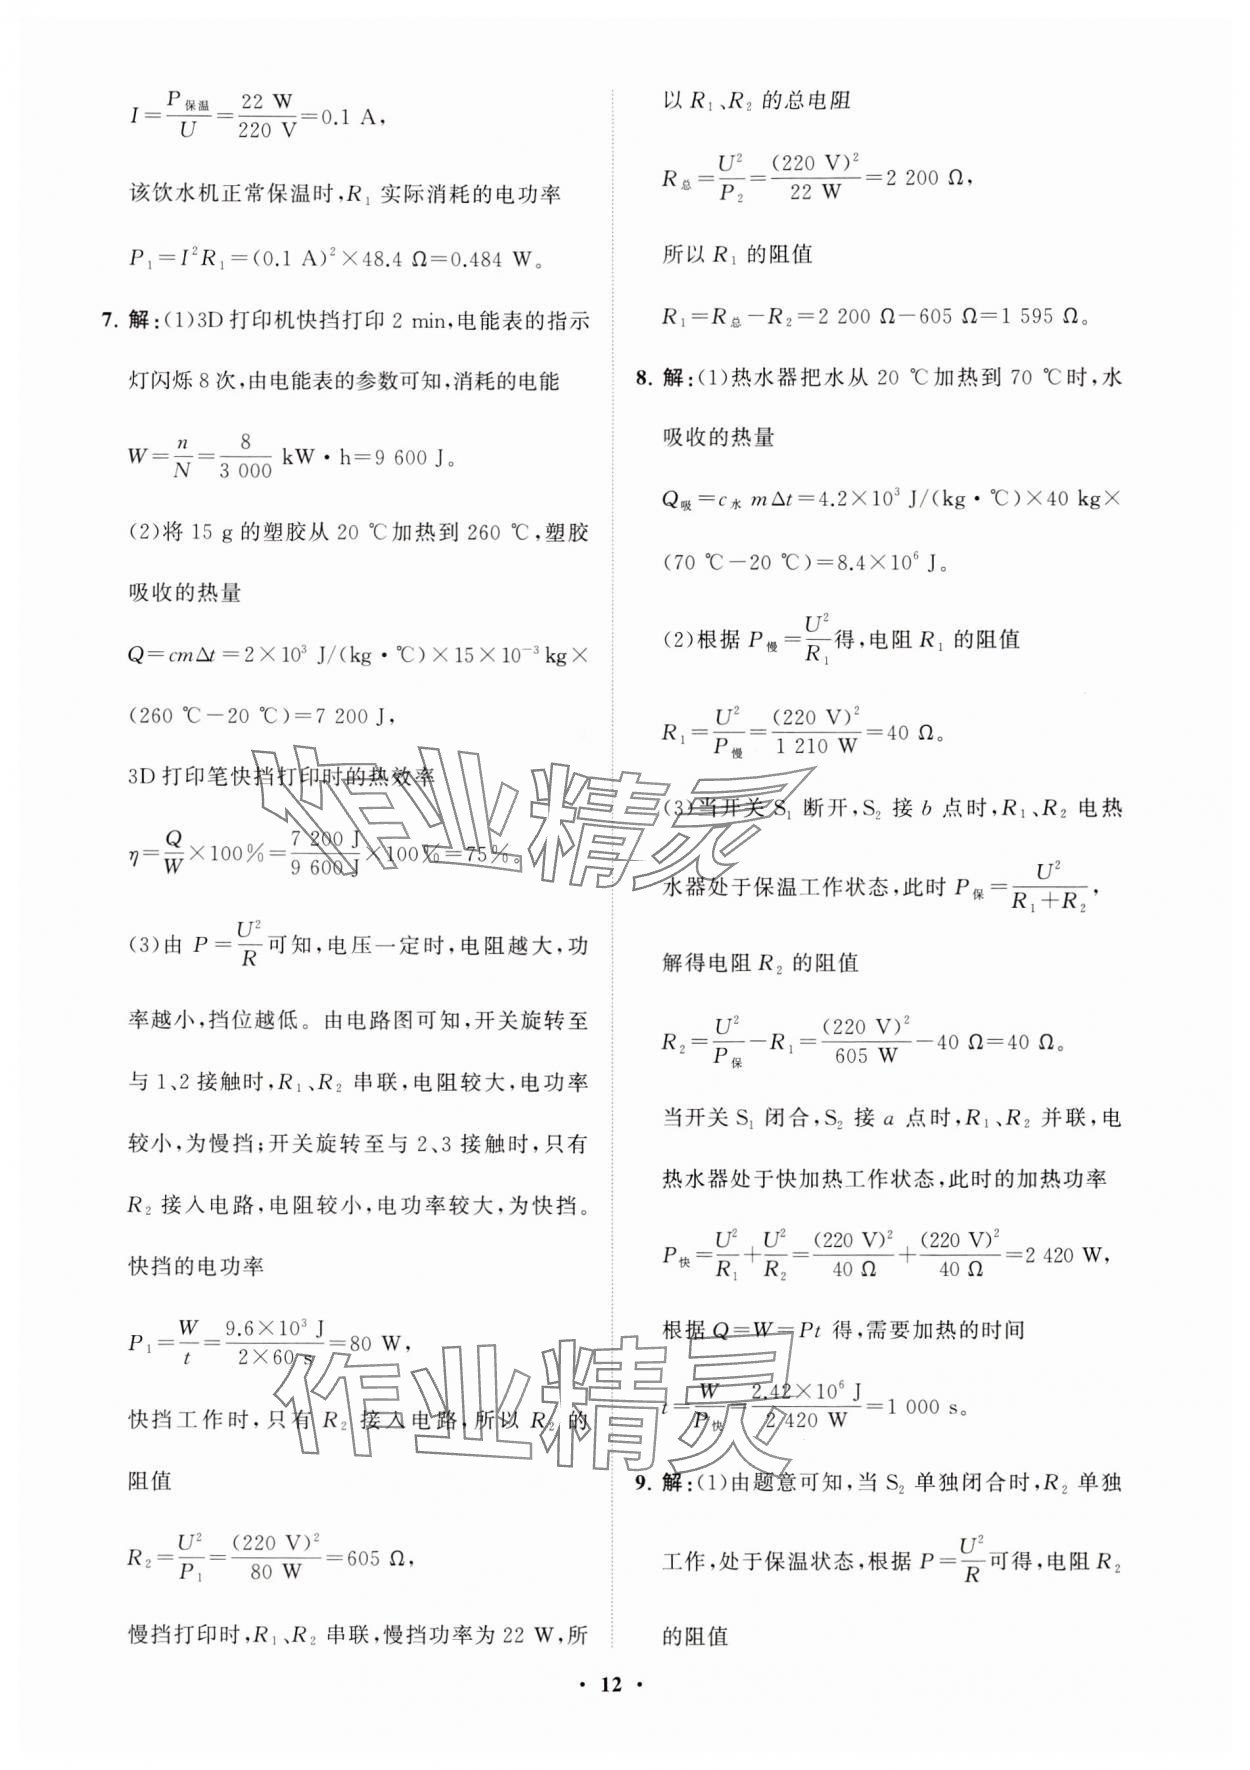 I=P保温/U=22 W/220 V=0.1 A,
该饮水机正常保温时,R₁ 实际消耗的电功率
P₁=I²R₁=(0.1 A)²×48.4 Ω=0.484 W。
7. 解:(1)3D 打印机快挡打印 2 min,电能表的指示
灯闪烁 8 次,由电能表的参数可知,消耗的电能
W=n/N=8/3 000 kW·h=9 600 J。
(2)将 15 g 的塑胶从 20 ℃加热到 260 ℃,塑胶
吸收的热量
Q=cmΔt=2×10³ J/(kg·℃)×15×10⁻³ kg×
(260 ℃-20 ℃)=7 200 J,
3D 打印笔快挡打印时的热效率
η=Q/W×100%=7 200 J/9 600 J×100%=75%。
(3)由 P=U²/R可知,电压一定时,电阻越大,功
率越小,挡位越低。由电路图可知,开关旋转至
与 1、2 接触时,R₁、R₂ 串联,电阻较大,电功率
较小,为慢挡;开关旋转至与 2、3 接触时,只有
R₂ 接入电路,电阻较小,电功率较大,为快挡。
快挡的电功率
P₁=W/t=9.6×10³ J/2×60 s=80 W,
快挡工作时,只有 R₂ 接入电路,所以 R₂ 的
阻值
R₂=U²/P₁=(220 V)²/80 W=605 Ω,
慢挡打印时,R₁、R₂ 串联,慢挡功率为 22 W,所
以 R₁、R₂ 的总电阻
R总=U²/P₂=(220 V)²/22 W=2 200 Ω,
所以 R₁ 的阻值
R₁=R总-R₂=2 200 Ω-605 Ω=1 595 Ω。
8. 解:(1)热水器把水从 20 ℃加热到 70 ℃时,水
吸收的热量
Q吸=c水 mΔt=4.2×10³ J/(kg·℃)×40 kg×
(70 ℃-20 ℃)=8.4×10⁶ J。
(2)根据 P慢=U²/R₁得,电阻 R₁ 的阻值
R₁=U²/P慢=(220 V)²/1 210 W=40 Ω。
(3)当开关 S₁ 断开,S₂ 接 b 点时,R₁、R₂ 电热
水器处于保温工作状态,此时 P保=U²/R₁+R₂,
解得电阻 R₂ 的阻值
R₂=U²/P保-R₁=(220 V)²/605 W-40 Ω=40 Ω。
当开关 S₁ 闭合,S₂ 接 a 点时,R₁、R₂ 并联,电
热水器处于快加热工作状态,此时的加热功率
P快=U²/R₁+U²/R₂=(220 V)²/40 Ω+(220 V)²/40 Ω=2 420 W,
根据 Q=W=Pt 得,需要加热的时间
t=W/P快=2.42×10⁶ J/2 420 W=1 000 s。
9. 解:(1)由题意可知,当 S₂ 单独闭合时,R₂ 单独
工作,处于保温状态,根据 P=U²/R可得,电阻 R₂
的阻值
作业精灵
作业精灵
· 12 ·